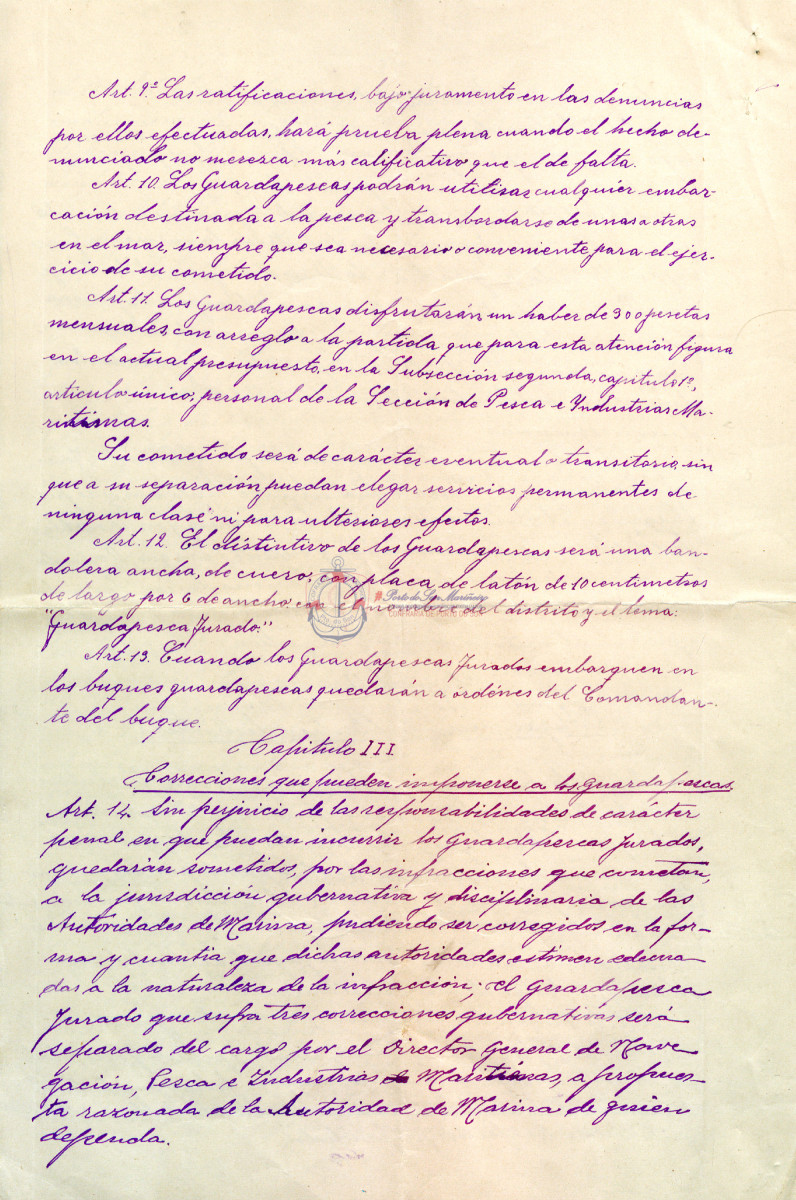 Art. 9º. Las ratificaciones, bajo juramento en las denuncias
por ellos efectuadas, hará prueba plena cuando el hecho de-
nunciado no merezca más calificativo que el de falta.
Art. 10. Los Guardapescas podrán utilisar cualquier embar-
cación destinada a la pesca y transbordarse de unas a otras
en el mar, siempre que sea necesario o conveniente para el ejer-
cicio de su cometido.
Art. 11. Los Guardapescas disfrutarán un haber de 300 pesetas
mensuales, con arreglo a la partida que para esta atención figura
en el actual presupuesto, en la Subsección segunda, capitulo 1º,
articulo único, personal de la Sección de Pesca e Industrias Ma-
ritimas.
Su cometido será de carácter eventual o transitorio, sin
que a su separación puedan alegar servicios permanentes de
ninguna clase ni para ulteriores efectos.
Art. 12. El distintivo de los Guardapescas será una ban-
dolera ancha, de cuero, con placa de latón de 10 centimetros
de largo por 6 de ancho con el nombre del distrito y el lema:
"Guardapesca Jurado."
Art. 13. Cuando los Guardapescas Jurados embarquen en
los buques guardapescas quedarán a ordénes del Comandan-
te del buque.
Capitulo III
Correcciones que pueden imponerse a los Guardapescas.
Art. 14. Sin perjuicio de las responsabilidades de carácter
penal en que puedan incurrir los Guardapescas Jurados,
quedarán sometidos, por las infracciones que cometan,
a la jurisdicción gubernativa y disciplinaria de las
Autoridades de Marina, pudiendo ser corregidos en la for-
ma y cuantia que dichas autoridades estimen adecua-
das a la naturaleza de la infracción; el Guardapesca
Jurado que sufra tres correcciones gubernativas será
separado del cargo por el Director General de Nave-
gación, Pesca e Industrias Maritimas, a propues-
ta razonada de la Autoridad de Marina de quien
dependa.